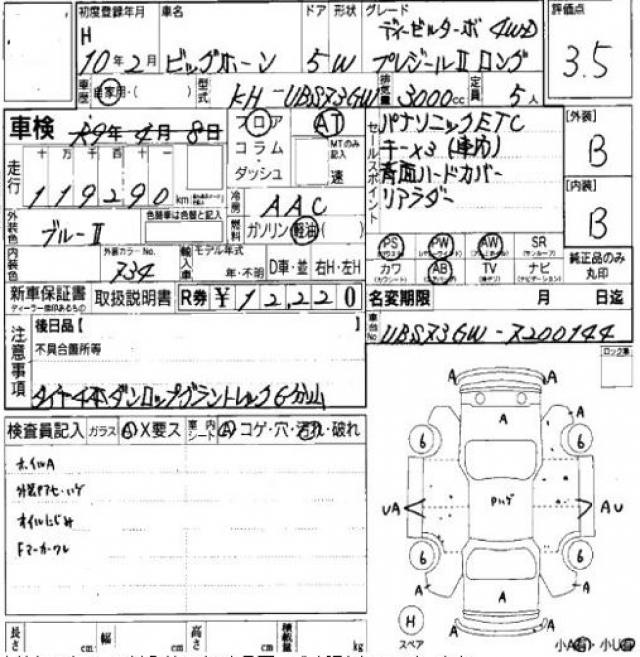 初度登録年月 車名 ドア 形状 グレード 評価点
H 10年2月 ビッグホーン 5 W ディーゼルターボ 4WD プレジールⅡ ロング 3.5
車歴 自家用・( ) 型式 KH-UBS73GW 排気量 3000cc 定員 5人
車検 ~~R9年4月8日~~ フロア AT セールスポイント パナソニックETC [外装] B
コラム・ダッシュ MTのみ記入 速 キー×3(車内)
背面ハードカバー
リアラダー [内装] B
走行 十万千百十一 119290 km
冷房 AAC
外装色 ブルーⅡ 色替車は色替と記入 燃料 ガソリン 軽油 ( )
PS PW AW SR (サンルーフ) 純正品のみ丸印
カワ AB TV ナビ (ナビゲーション)
内装色 外装カラーNo. 734 輸入車 モデル年式 年・不明 D車・並 右H・左H
新車保証書 取扱説明書 R券 ¥12,220 名変期限 月 日迄
ディーラー捺印あるもの
車台No UBS73GW-7200144
注意事項 後日品【 】
不具合箇所等
タイヤ4本ダンロップグラントレック6分山
ロック車
検査員記入 ガラス A X要ス 車内シート A コゲ・穴・汚れ・破れ
ホイルA
オイルにじみ
Fマーカーワレ
A A
A
A A
6 6
UA Pハゲ AU
6 6
A A
A
H A A
スペア
長さ cm 幅 cm 高さ cm 積載量 kg